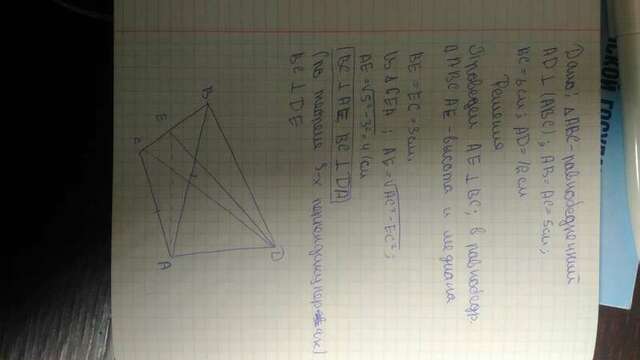 Дано: ΔABC - равнобедренный
AD ⊥ (ABC); AB = AC = 5см;
BC = 6 см; AD = 12 см
Решения
Проводим AE ⊥ BC; в равнобедр.
ΔABC AE - высота и медиана
BE = EC = 3 см.
Из ΔCEA; AE = √AC² - EC²;
AE = √5² - 3² = 4 см
BC ⊥ AE, BC ⊥ DA
(по теореме 3-х перпендикуляр
BC ⊥ DE
B
E
C
A
D
ГОСУ